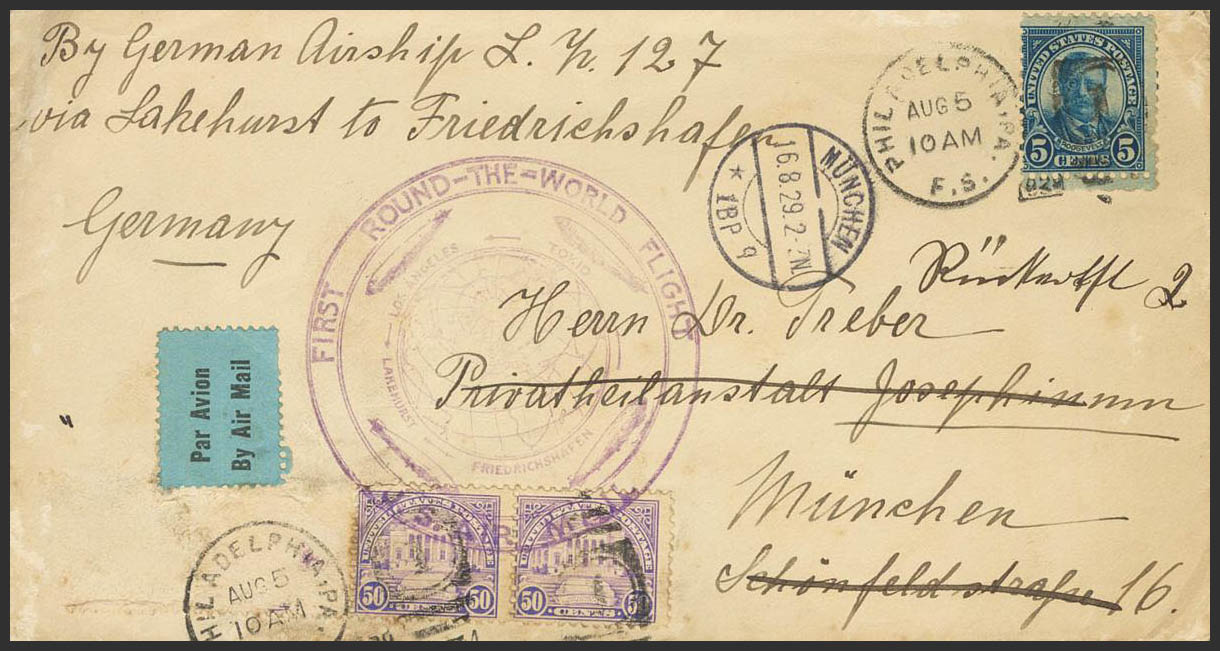 By German Airship L. Z. 127
via Lakehurst to Friedrichshafen
Germany
UNITED STATES POSTAGE
ROOSEVELT
5 CENTS 5
PHILADELPHIA, PA.
AUG 5
10 AM
F.S.
MÜNCHEN
16.8.29.2-
* 1BP 9
FIRST ROUND-THE-WORLD FLIGHT
U.S. AIR MAIL
LOS ANGELES
TOKIO
LAKEHURST
FRIEDRICHSHAFEN
2
Herrn Dr. Treber
Privatheilanstalt Josephinum
München
Schönfeldstraße 16.
Par Avion
By Air Mail
UNITED STATES POSTAGE
50 CENTS 50
UNITED STATES POSTAGE
50 CENTS 50
PHILADELPHIA, PA.
AUG 5
10 AM